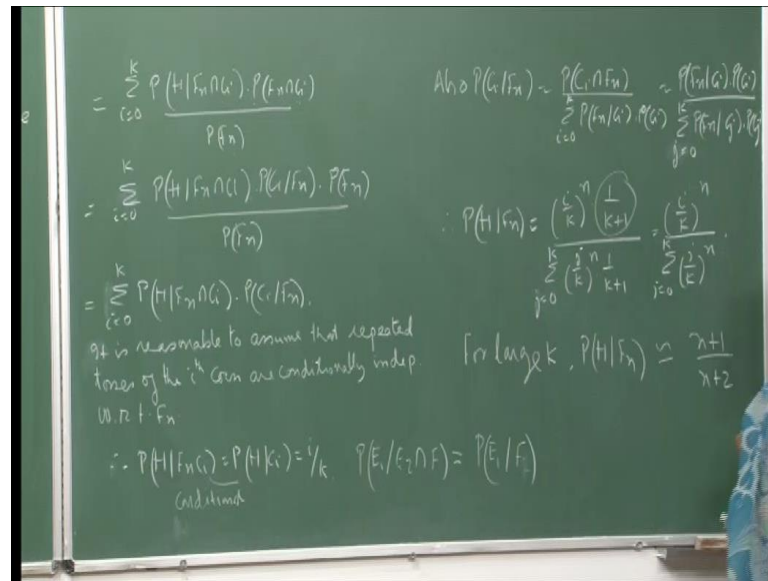 e
= \sum_{i=0}^{k} \frac{P(H|F_n∩C_i).P(F_n∩C_i)}{P(F_n)}
= \sum_{i=0}^{k} \frac{P(H|F_n∩C_i).P(C_i/F_n).P(F_n)}{P(F_n)}
= \sum_{i=0}^{k} P(H|F_n∩C_i).P(C_i/F_n).
It is reasonable to assume that repeated
tosses of the i^{th} coin are conditionally indep.
w.r.t. F_n
∴ P(H|F_nC_i) = P(H|C_i) = i/k
conditional
P(E_1/E_2∩F) = P(E_1/F)
Also P(C_i/F_n) = \frac{P(C_i∩F_n)}{\sum_{i=0}^{k} P(F_n/C_i).P(C_i)} = \frac{P(F_n|C_i).P(C_i)}{\sum_{j=0}^{k} P(F_n/C_j).P(C_j)}
∴ P(H|F_n) = \frac{(\frac{i}{k})^n (\frac{1}{k+1})}{\sum_{j=0}^{k} (\frac{j}{k})^n \frac{1}{k+1}} = \frac{(\frac{i}{k})^n}{\sum_{j=0}^{k} (\frac{j}{k})^n}.
For large k, P(H|F_n) ≃ \frac{n+1}{n+2}